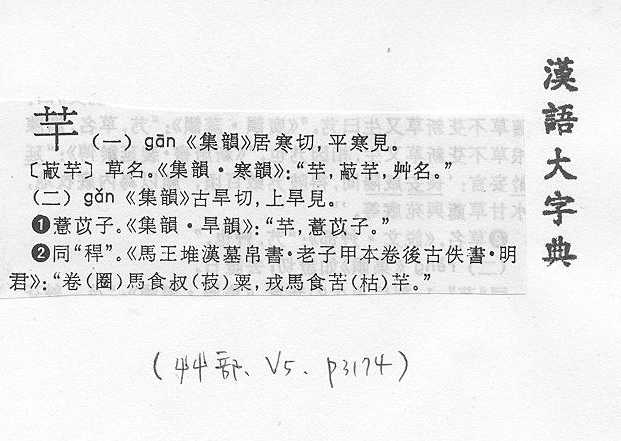 芉 (一) gān《集韻》居寒切，平寒見。
〔蔽芉〕草名。《集韻·寒韻》：“芉，蔽芉，艸名。”
(二) gǎn《集韻》古旱切，上旱見。
❶薏苡子。《集韻·旱韻》：“芉，薏苡子。”
❷同“稈”。《馬王堆漢墓帛書·老子甲本卷後古佚書·明
君》：“卷(圈)馬食叔(菽)粟，戎馬食苦(枯)芉。”
漢語大字典
(艸部、V5、p3174)